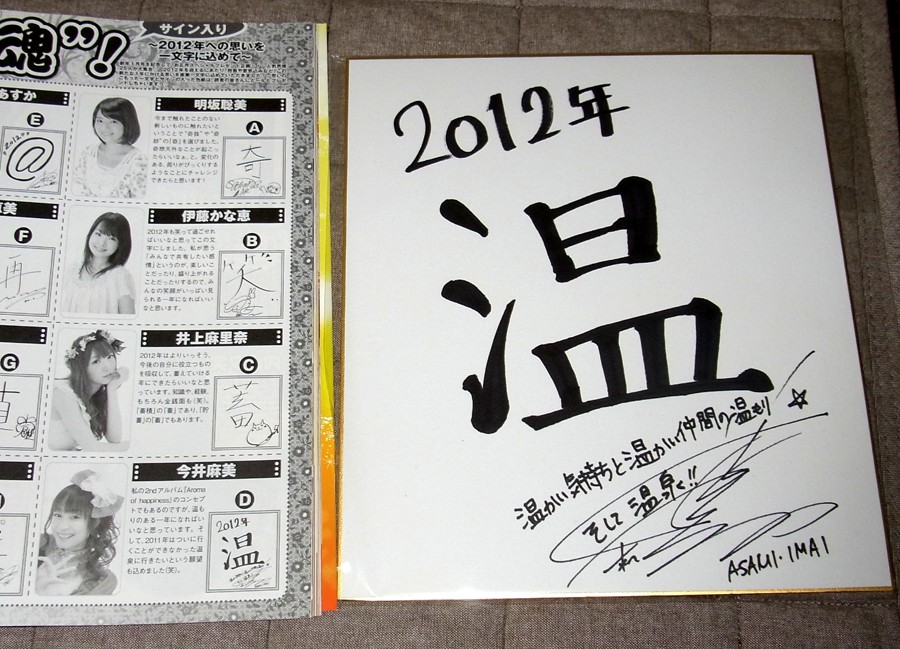 魂"!
サイン入り
~2012年への思いを
一文字に込めて~
あすか
E
@
F
再
G
明坂聡美
今まで触れたことのない
新しいものに触れたいと
いうことで"奇抜"や"奇
妙"の「奇」を選びました。
奇想天外なことが起こっ
たらいいなぁ、と。変化の
ある、周りがびっくりする
ようなことにチャレンジ
できたらと思います!
A
奇
伊藤かな恵
2012年も笑って過ごせれ
ばいいなと思ってこの文
字にしました。私が思う
「みんなで共有したい感
情」というのが、楽しいこ
とだったり、盛り上がれる
ことだったりするので、み
んなの笑顔がいっぱい見
られる一年になればいい
なと思います。
B
笑
井上麻里奈
2012年はよりいっそう、
今後の自分に役立つもの
を吸収して、蓄えていける
年にできたらいいなと思
っています。知識や、経験、
もちろん金銭面も(笑)。
「蓄積」の「蓄」であり、「貯
蓄」の「蓄」でもあります。
C
蓄
今井麻美
私の2ndアルバム「Aroma
of happiness」のコンセプ
トでもあるのですが、温も
りのある一年になればい
いなと思っています。そ
して、2011年はついに行
くことができなかった温
泉に行きたいという願望
も込めました(笑)。
D
2012年
温
2012年
温
温かい気持ちと温かい仲間の温もり
そして温泉く!!
ASAMI・IMAI